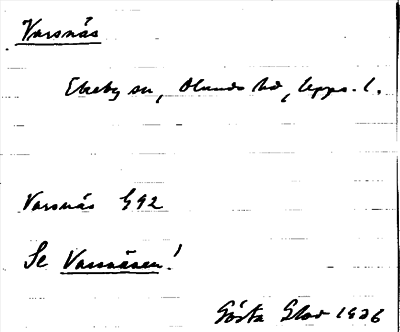 Varsnäs
Ekeby sn, Olands hd, Upps. l.
Varsnäs G92
Se Varsnäsen!
Gösta Glad 1926